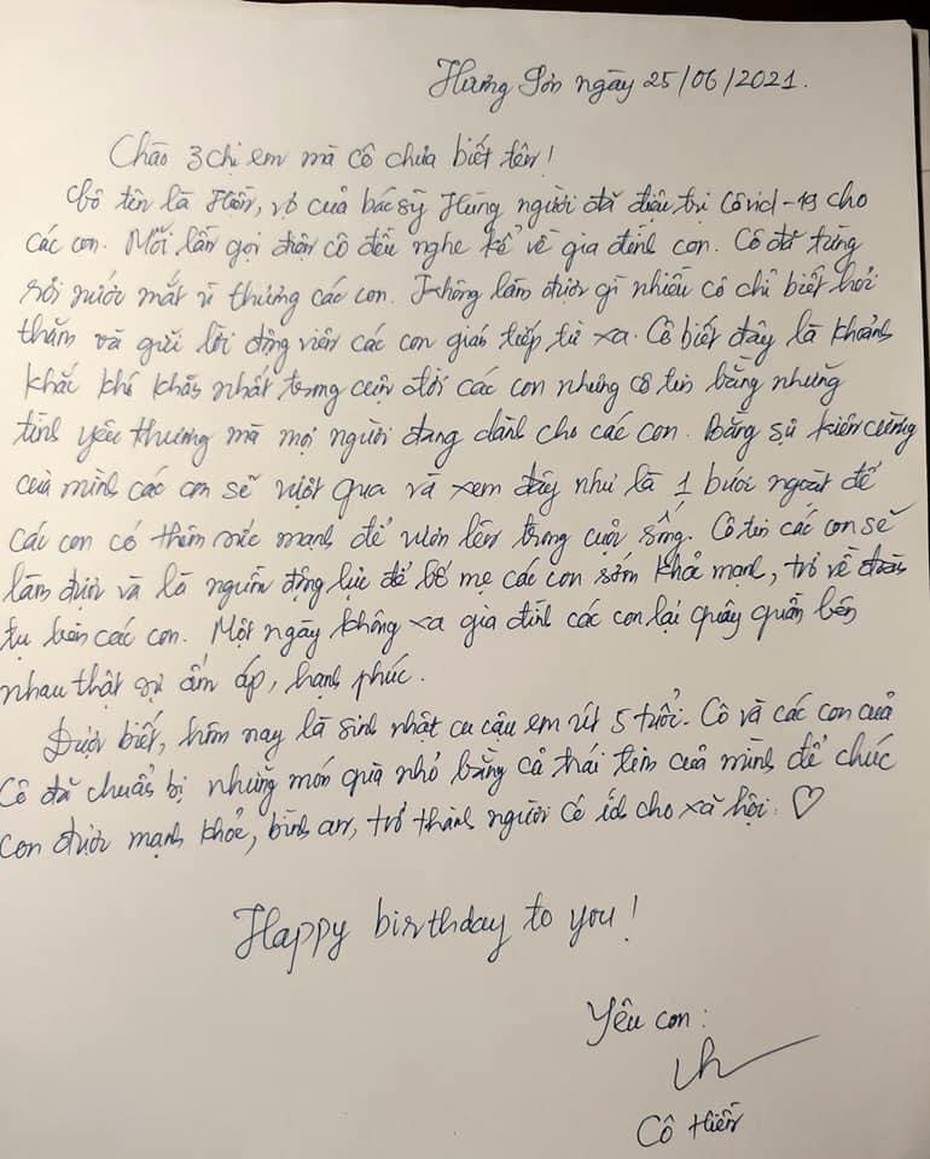 Hương Sơn ngày 25/06/2021.
Chào 3 chị em mà cô chưa biết tên!
Cô tên là Hiền, vợ của bác sỹ Hùng người đã điều trị Côvid-19 cho
các con. Mỗi lần gọi điện cô đều nghe kể về gia đình con. Cô đã từng
rơi nước mắt vì thương các con. Không làm được gì nhiều cô chỉ biết hỏi
thăm và gửi lời động viên các con gián tiếp từ xa. Cô biết đây là khoảnh
khắc khó khăn nhất trong cuộc đời các con nhưng cô tin bằng những
tình yêu thương mà mọi người đang dành cho các con. Bằng sự kiên cường
của mình các con sẽ vượt qua và xem đây như là 1 bước ngoặt để
các con có thêm sức mạnh để vươn lên trong cuộc sống. Cô tin các con sẽ
làm được và là nguồn động lực để bố mẹ các con sớm khoẻ mạnh, trở về đoàn
tụ bên các con. Một ngày không xa gia đình các con lại quây quần bên
nhau thật sự ấm áp, hạnh phúc.
Được biết, hôm nay là sinh nhật cu cậu em út 5 tuổi. Cô và các con của
Cô đã chuẩn bị những món quà nhỏ bằng cả trái tim của mình để chúc
con được mạnh khoẻ, bình an, trở thành người có ích cho xã hội. ♡
Happy birthday to you!
Yêu con:
Cô Hiền